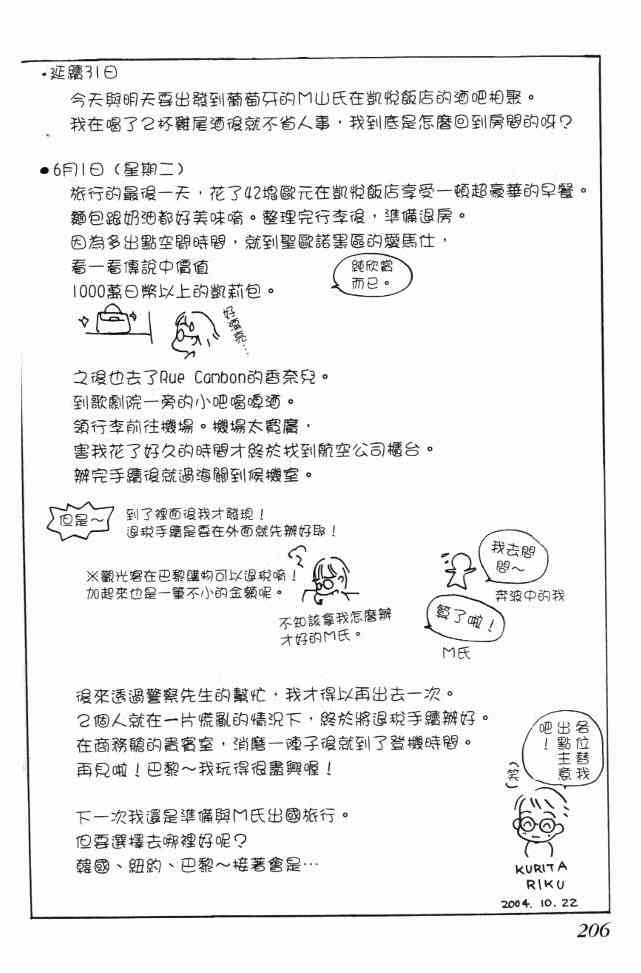 ・延續31日
今天與明天要出發到葡萄牙的M山氏在凱悅飯店的酒吧相聚。
我在喝了2杯雞尾酒後就不省人事，我到底是怎麼回到房間的呀？
●6月1日（星期二）
旅行的最後一天，花了42塊歐元在凱悅飯店享受一頓超豪華的早餐。
麵包跟奶油都好美味唷。整理完行李後，準備退房。
因為多出點空閒時間，就到聖歐諾黑區的愛馬仕，
看一看傳說中價值
1000萬日幣以上的凱莉包。
純欣賞
而已。
之後也去了Rue Canbon的香奈兒。
到歌劇院一旁的小吧喝啤酒。
領行李前往機場。機場太寬廣，
害我花了好久的時間才終於找到航空公司櫃台。
辦完手續後就過海關到候機室。
但是～
到了裡面後我才發現！
退稅手續是要在外面就先辦好耶！
※觀光客在巴黎購物可以退稅唷！
加起來也是一筆不小的金額呢。
不知該拿我怎麼辦
才好的M氏。
我去問
問～
奔波中的我
算了啦！
M氏
後來透過警察先生的幫忙，我才得以再出去一次。
2個人就在一片慌亂的情況下，終於將退稅手續辦好。
在商務艙的貴賓室，消磨一陣子後就到了登機時間。
再見啦！巴黎～我玩得很盡興喔！
下一次我還是準備與M氏出國旅行。
但要選擇去哪裡好呢？
韓國、紐約、巴黎～接著會是…
各位替我
出點主意
吧！
（笑）
KURITA
RIKU
2004. 10. 22
206